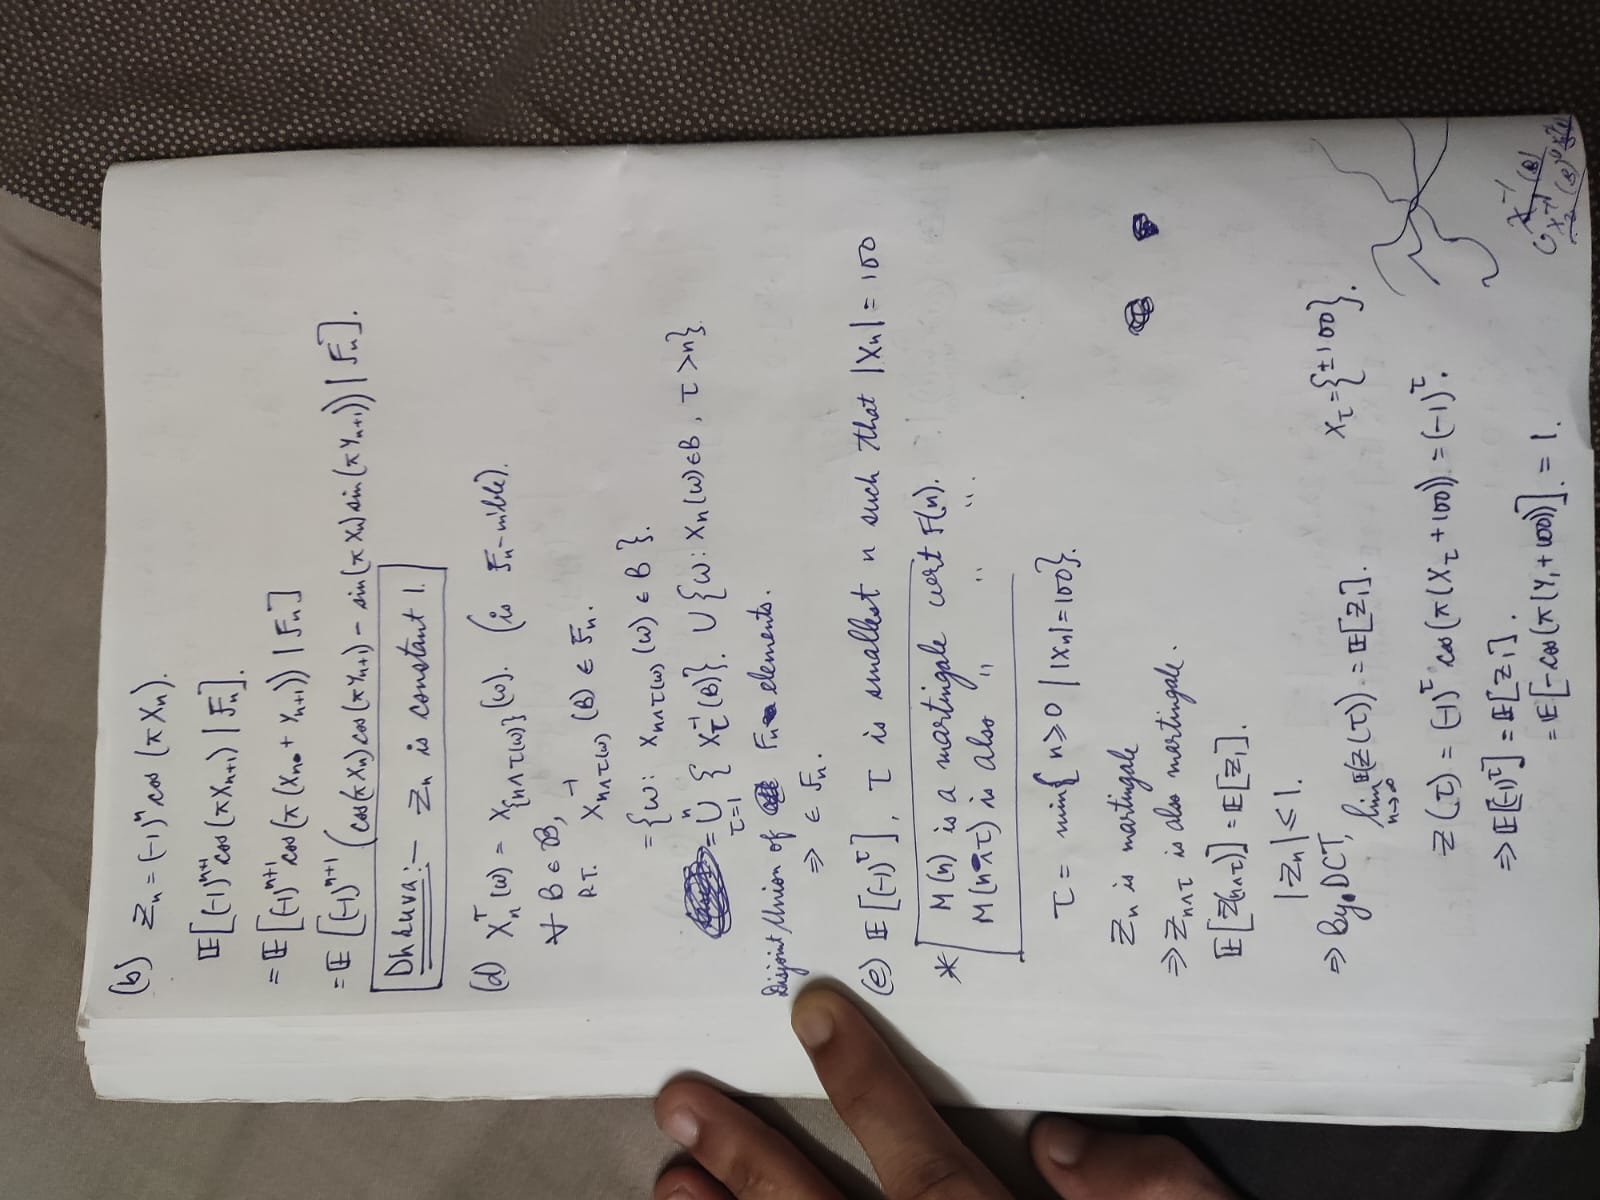 (b) Z_n = (-1)^n cos(πX_n).
E[(-1)^{n+1} cos(πX_{n+1}) | F_n].
= E[(-1)^{n+1} cos(π(X_n + Y_{n+1})) | F_n]
= E[(-1)^{n+1} (cos(πX_n) cos(πY_{n+1}) - sin(πX_n) sin(πY_{n+1})) | F_n].
Dhruva:- Z_n is constant 1.
(d) X_n^τ(ω) = X_{{n∧τ(ω)}}(ω). (is F_n-mible).
∀ B ∈ B,
P.T. X^{-1}_{n∧τ(ω)}(B) ∈ F_n.
= {ω: X_{n∧τ(ω)}(ω) ∈ B}.
= ∪_{τ=1}^n {X_τ^{-1}(B)}. ∪ {ω: X_n(ω) ∈ B, τ > n}.
Disjoint Union of F_n elements.
⇒ ∈ F_n.
(e) E[(-1)^τ], τ is smallest n such that |X_n| = 100
* M(n) is a martingale wrt F(n).
M(n∧τ) is also " " " "
τ = min{n ≥ 0 | |X_n| = 100}.
Z_n is martingale
⇒ Z_{n∧τ} is also martingale.
E[Z_{(n∧τ)}] = E[Z_1].
|Z_n| ≤ 1.
⇒ By DCT, lim_{n→∞} E(Z(τ)). = E[Z_1]. X_τ = {±100}.
Z(τ) = (-1)^τ cos(π(X_τ + 100)) = (-1)^τ.
⇒ E[(-1)^τ] = E[Z_1].
= E[-cos(π(Y_1 + 100))]. = 1.